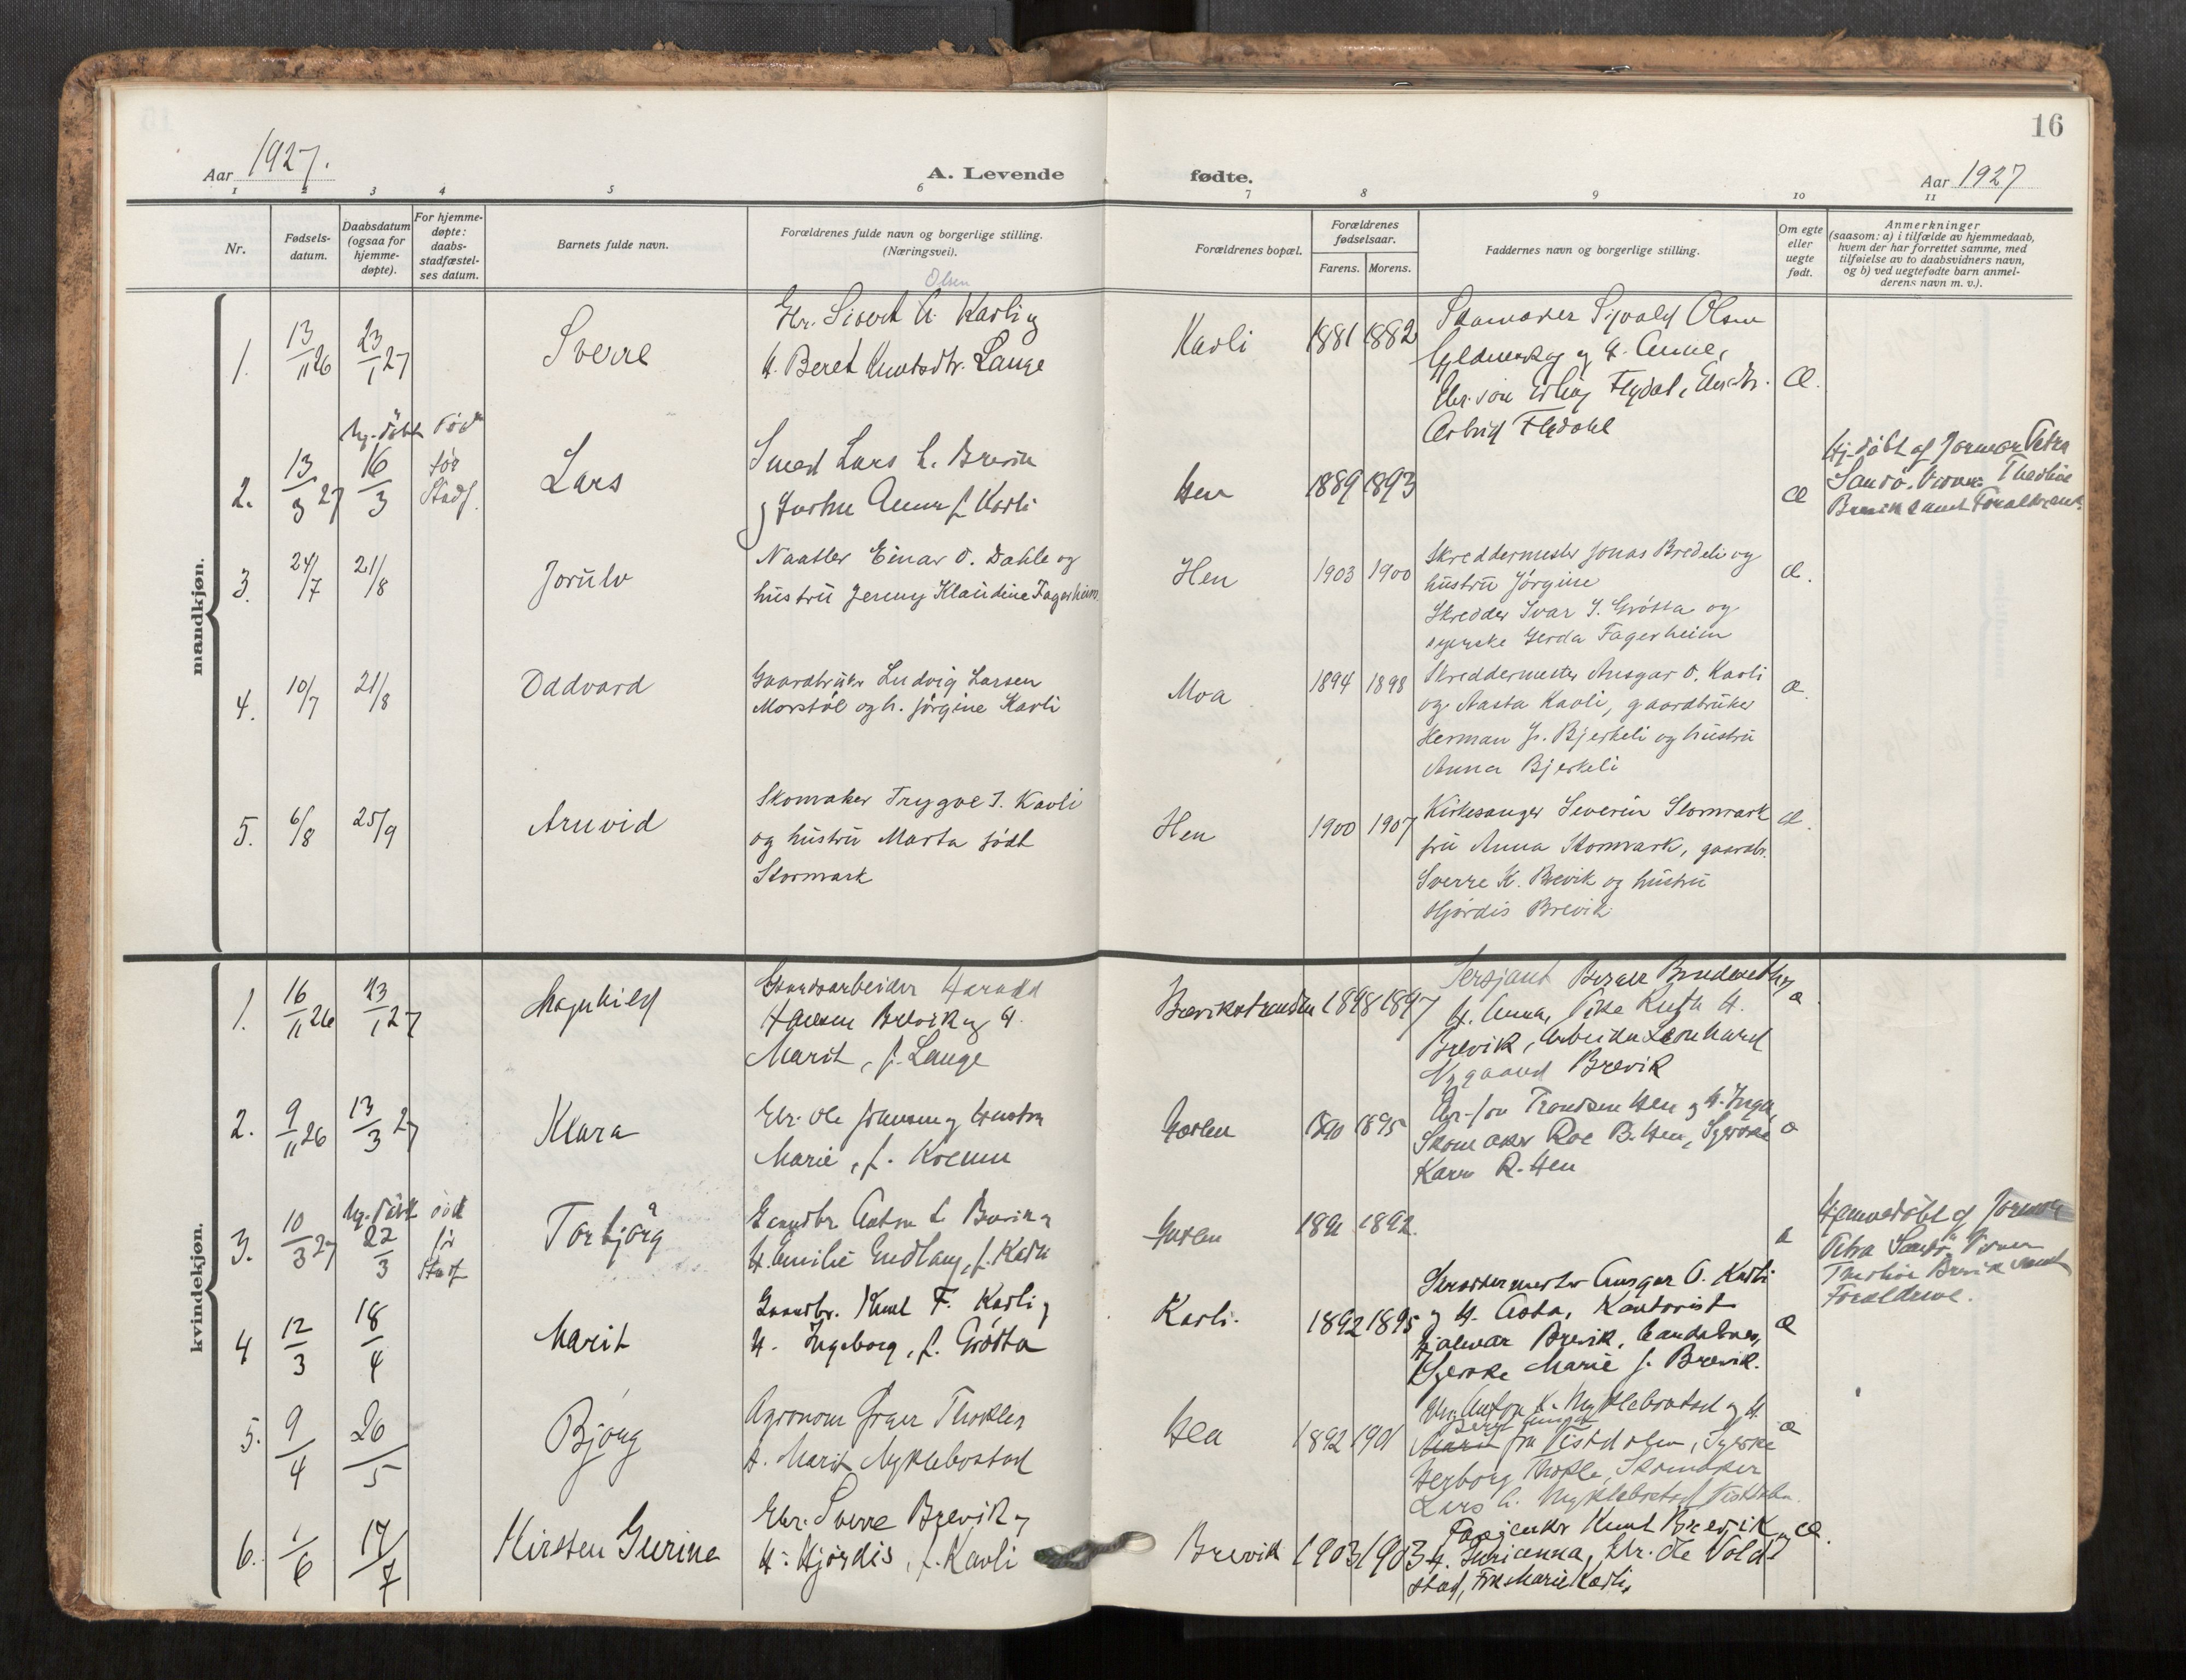 16
Aar 1927.
A. Levende
fødte.
Aar 1927
1 2 3 4 5 6 7 8 9 10 11
Nr.
Fødsels-
datum.
Daabsdatum
(ogsaa for
hjemme-
døpte).
For hjemme-
døpte:
daabs-
stadfæstel-
ses datum.
Barnets fulde navn.
Forældrenes fulde navn og borgerlige stilling.
(Næringsvei).
Forældrenes bopæl.
Forældrenes
fødselsaar.
Farens. Morens.
Faddernes navn og borgerlige stilling.
Om egte
eller
uegte
født.
Anmerkninger
(saasom: a) i tilfælde av hjemmedaab,
hvem der har forrettet samme, med
tilføielse av to daabsvidners navn,
og b) ved uegtefødte barn anmel-
derens navn m. v.).
mandkjøn.
Olsen
1. 13/11 26 23/1 27 Sverre
Gbr. Sivert A. Kavli og
H. Beret Knutsdtr. Lange
Kavli 1881 1882
Skomaker Sigvald Olsen
og H. Anne,
Gbr. søn Erling Flydal,
Astrid Flydahl
Æ.
2. 13/3 27 Hj. døbt 16/3 Død
før
Stadf.
Lars
Smed Lars L. Brevik
og Hustru Anna f. Kavli
Hen 1889 1893 Æ
Hj. døbt af Jormor Petra
Sandø. Vidner: Thedine
Brevik samt Forældrene.
3. 24/7 21/8 Jorulv
Naatler Einar O. Dahle og
hustru Jenny Klaudine Fagerheim
Hen 1903 1900
Skreddermester Jonas Bredeli og
hustru Jørgine
Skredder Ivar I. Grøtta og
syerske Gerda Fagerheim
æ.
4. 10/7 21/8 Oddvard
Gaardbruker Ludvig Larsen
Morstøl og h. Jørgine Kavli
Moa 1894 1898
Skreddermester Ansgar O. Kavli
og Aasta Kavli, gaardbruker
Herman Jr. Bjerkeli og hustru
Anna Bjerkeli
æ.
5. 6/8 25/9 Arnvid
Skomaker Trygve I. Kavli
og hustru Marta født
Stormark
Hen 1900 1907
Kirkesanger Severin Stormark
fru Anna Stormark, gaardbr.
Sverre K. Brevik og hustru
Hjørdis Brevik
æ.
kvindekjøn.
1. 16/11 26 23/1 27 Magnhild
Gaardsarbeider Harald
Hansen Brevik og H.
Marit, f. Lange
Brevikstranden 1898 1897
Sersjant Birger Brudeseth og
H. Anna, Pike Ruth H.
Brevik, Arbeider Leonhard
Nygaard Brevik
æ.
2. 9/11 26 13/3 27 Klara
Gbr. Ole Johnsen og Hustru
Marie, f. Kvemn
Gjøslen 1890 1895
Gbr. Jon Trondsen Hen og H. Inga,
Skomaker Roe B. Hen, Syerske
Karen R. Hen
æ
3. 10/3 27 Hj. døbt 22/3 død
før
Stadf
Torbjørg
Gaardbr Anton L. Brevik og
H. Emilie Gudlaug, f. Kavli
1891 1892. æ
Hjemmedøbt af Jormor
Petra Sandø. Vidner
Thedine Brevik samt
Forældrene.
4 12/3 18/4 Marit
Gaardbr. Knut F. Kavli og
H. Ingeborg, f. Grøtta
Kavli. 1892 1895
Skreddermester Ansgar O. Kavli
og H. Aasta, Kontorist
Hjalmar Brevik, Aandalsnes,
Syerske Marie J. Brevik.
æ
5. 9/4 20/5 Bjørg
Agronom Thokle og
H. Marit Myklebostad
Hen 1892 1901
Gbr. Anton K. Myklebostad og H.
Marie fra Tistdalen, Syerske
Herborg Thokle, Skomaker
Lars A. Myklebostad Tistdalen.
æ
6. 1/6 17/7 Kirsten Gurine
Gbr. Sverre Brevik og
H. Hjørdis, f. Kavli
Brevik 1903 1903
Knut Brevik og
H. Gurianna, Gbr. Ole Vold-
stad, Frk Marie Kavli,
Æ.